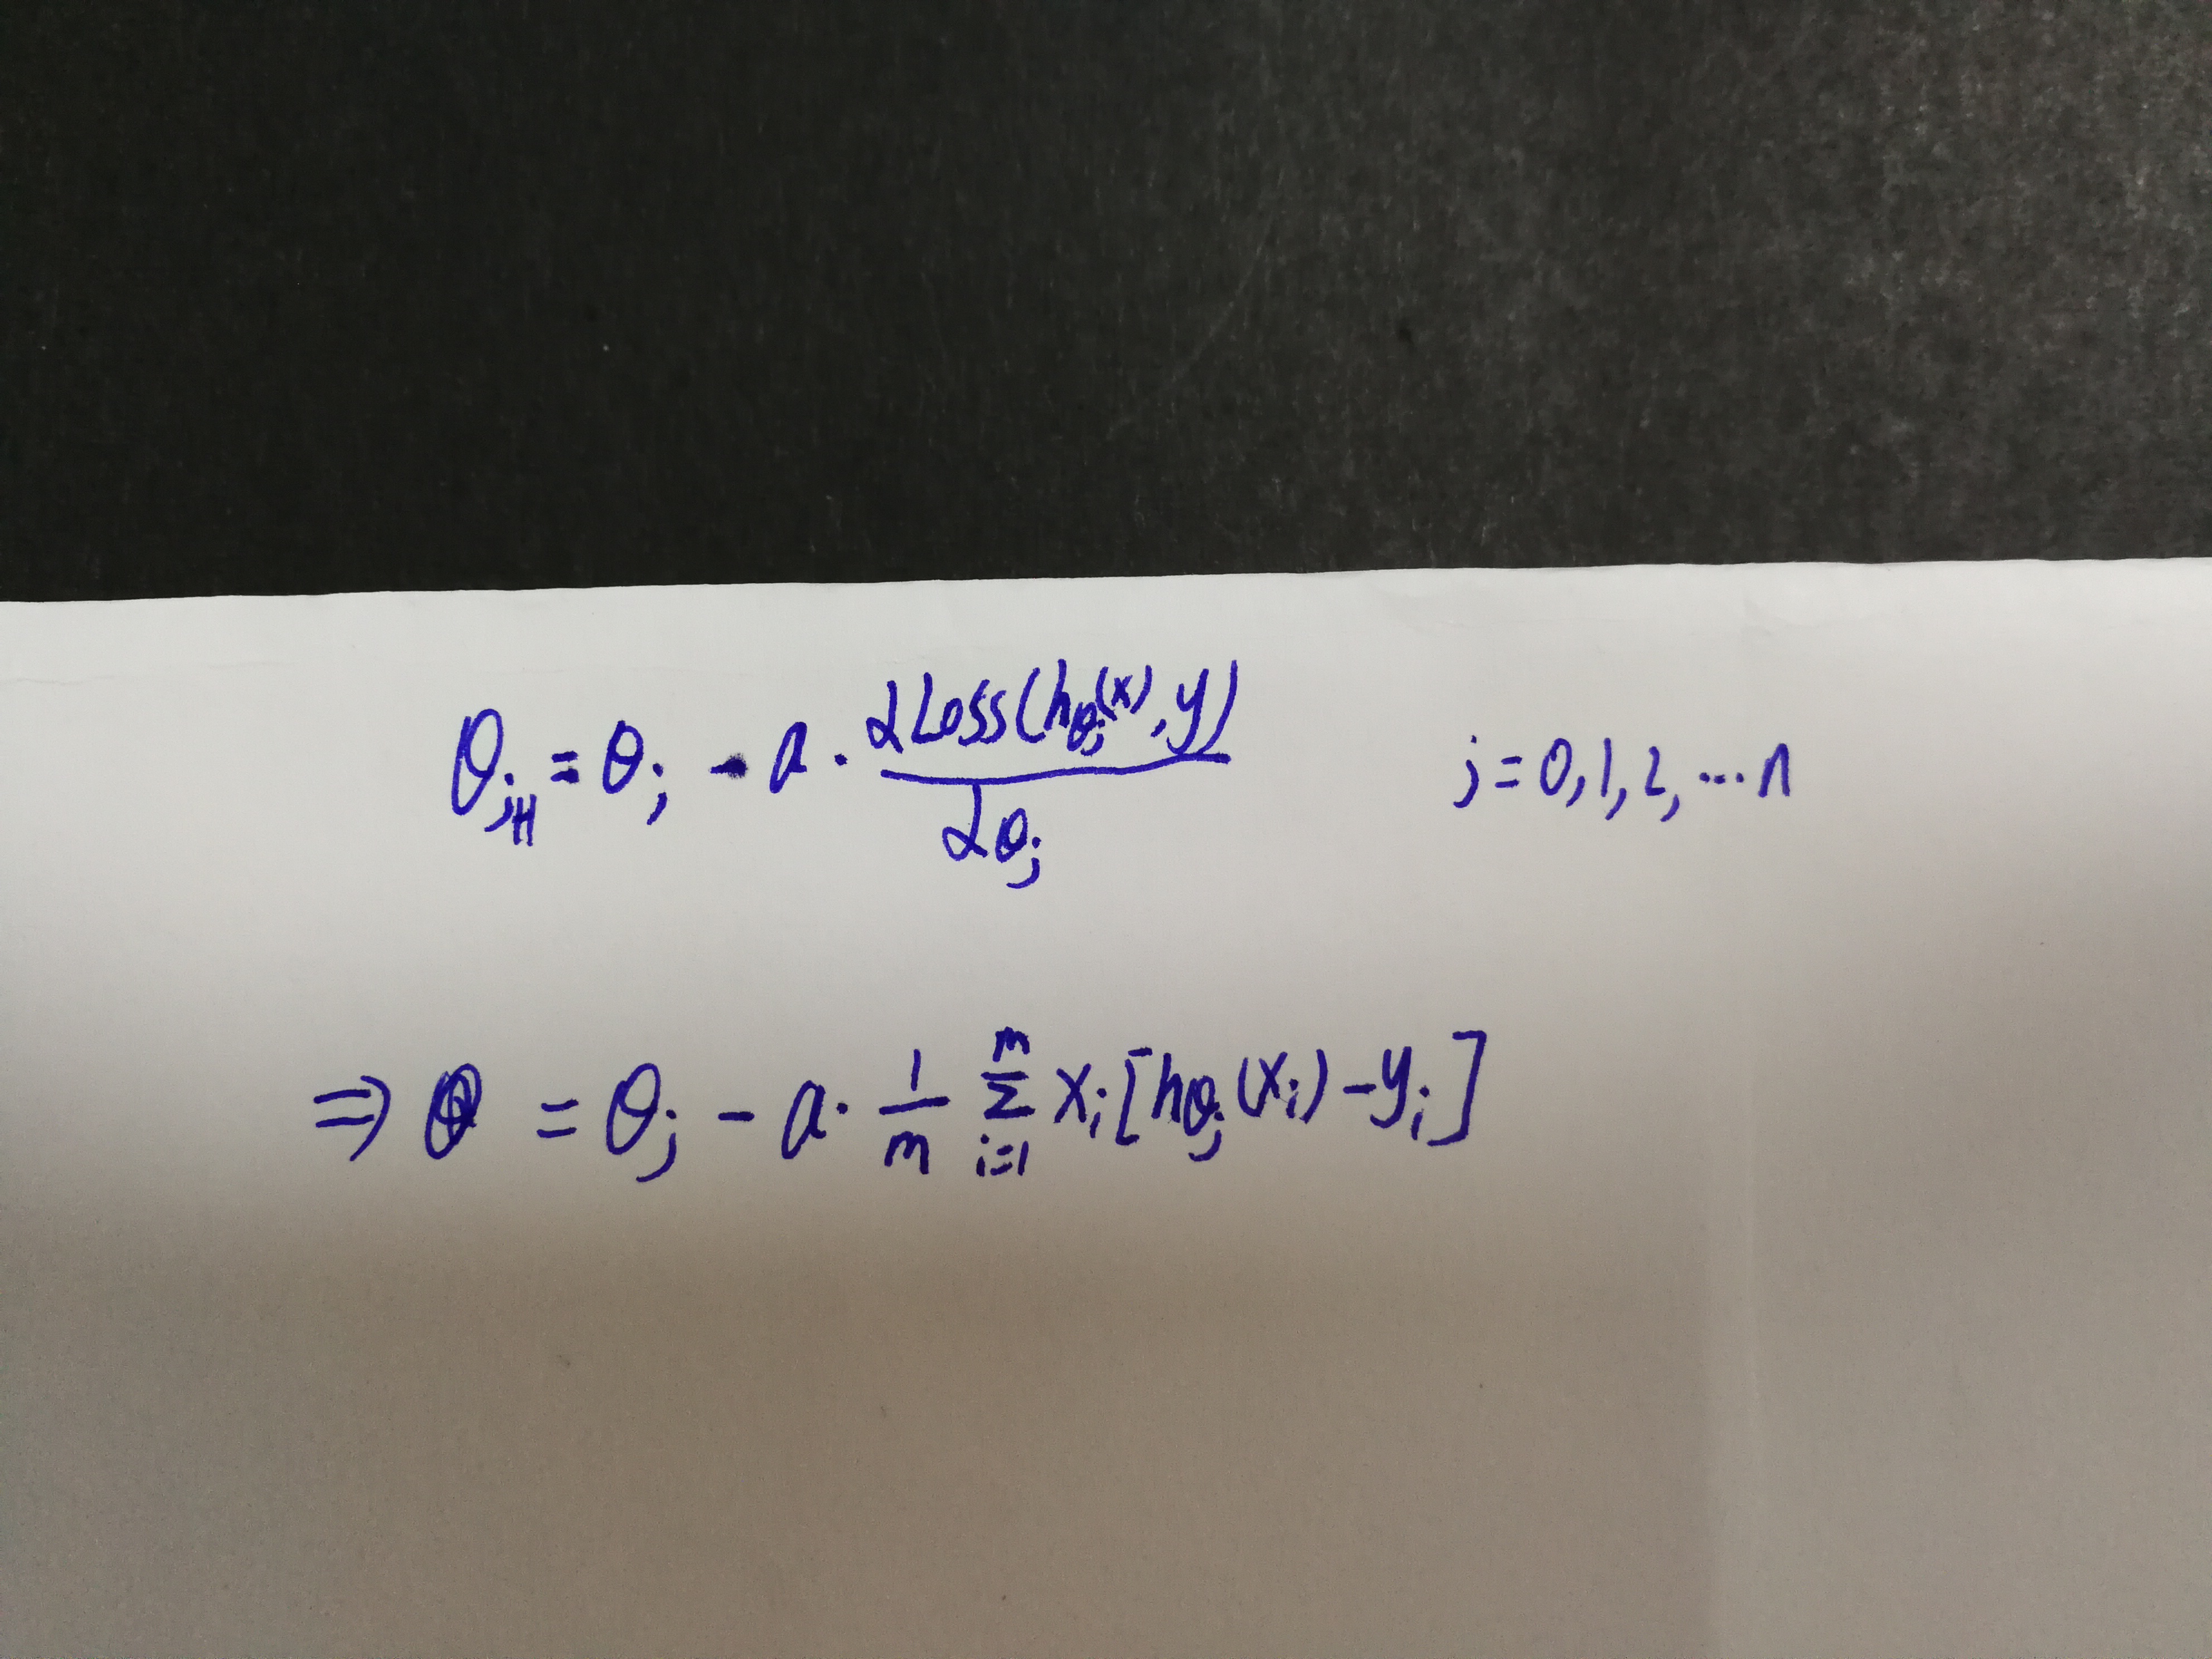 θ_{j+1} = θ_j - a · ∂Loss(h_{θ_j}(x), y) / ∂θ_j    j = 0, 1, 2, ... n
⇒ θ = θ_j - a · 1/m ∑_{i=1}^{m} x_i [h_{θ_j}(x_i) - y_i]